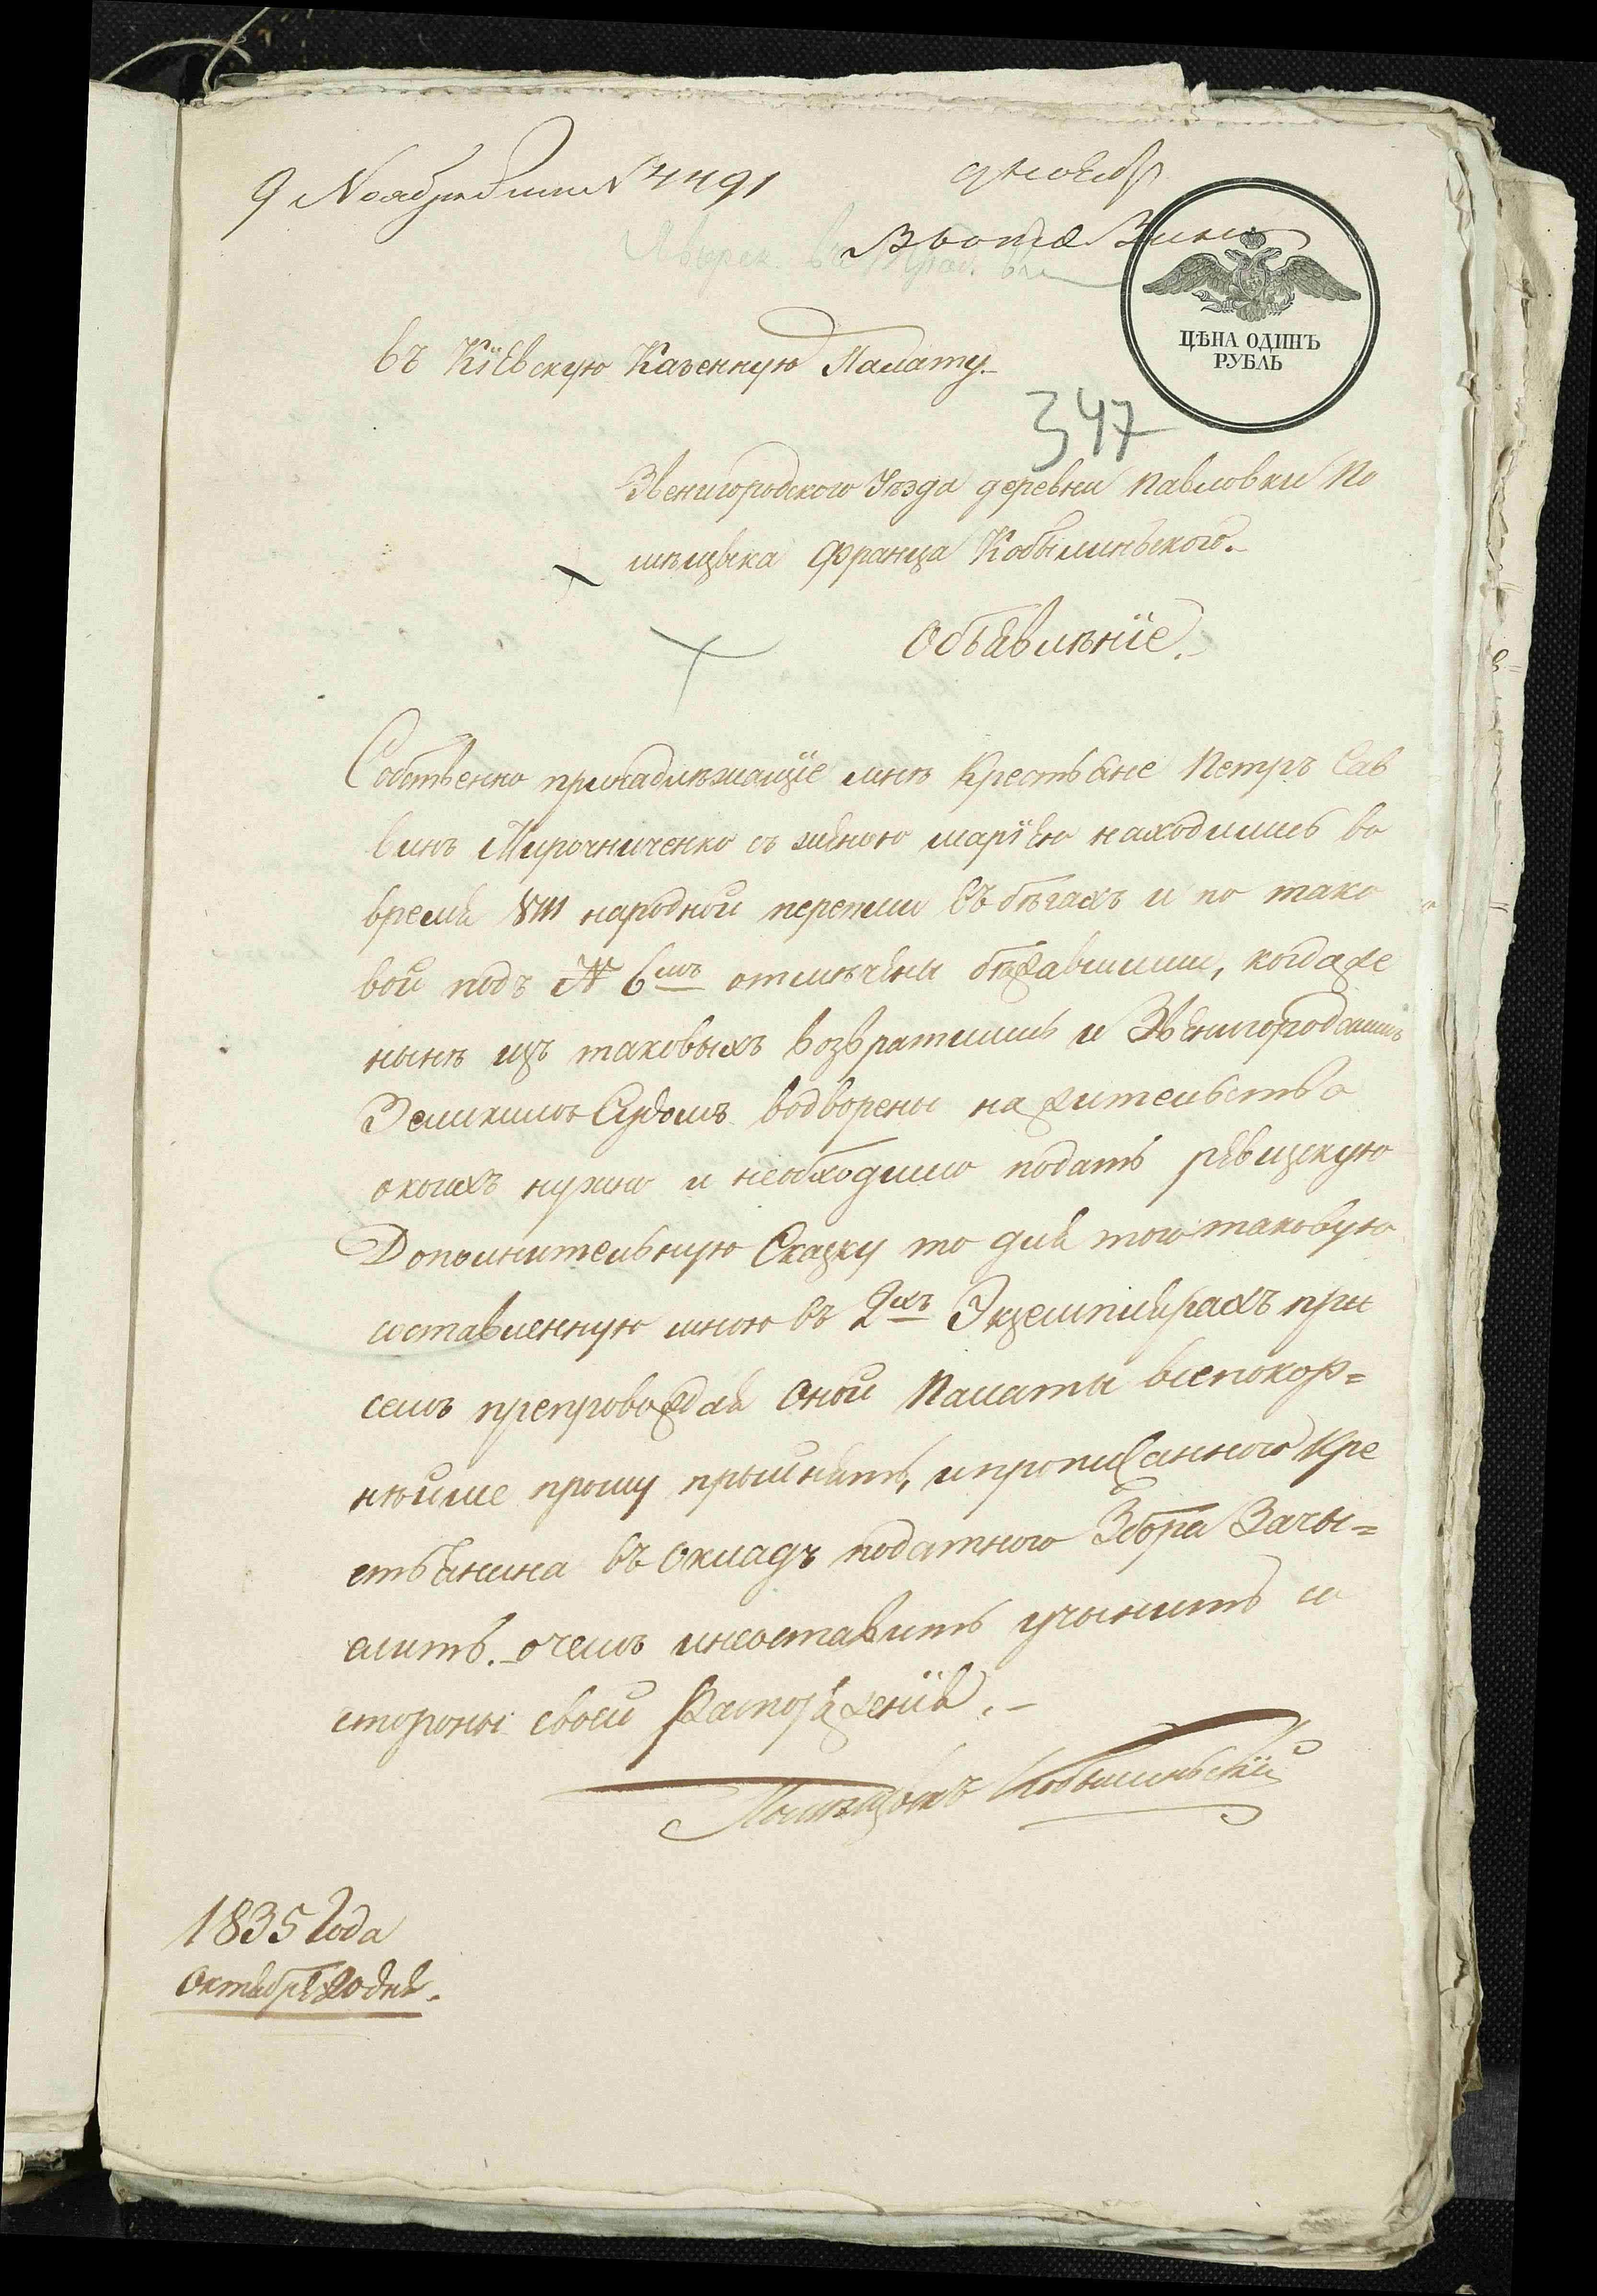 9 Ноября № 4491
ЦѢНА ОДИНЪ
РУБЛЬ
въ Кіевскую Казенную Палату.
347
Звенигородского Уѣзда деревни Павловки По
мѣщыка Франца Кобылинского.
Объявлѣніе.
Собственно принадлѣжащіе мнѣ Крестьяне Петръ Сав
винъ Мирочниченко съ женою Маріею находились во
время VIII народной переписи въ бѣгахъ и по тако
вой подъ № 6мъ отмѣчены бѣжавшими, когда же
нынѣ изъ таковыхъ возвратились и Звенигородскимъ
Земскимъ Судомъ водворены на жительство
о коихъ нужно и необходимо подать ревизскую
Дополнительную Сказку то для того таковую
составленную мною въ 2хъ Экземплярахъ при
семъ препровождая Оной Палаты всепокор=
нѣйше прошу прынять, и прописанного Кре
стьянина въ Окладъ податного Збора Зачы=
слить. о чемъ инеоставить учынить со
стороны своей Распоряженія.
Помѣщыкъ Кобылиньскій
1835 Года
Октября 20 дня.